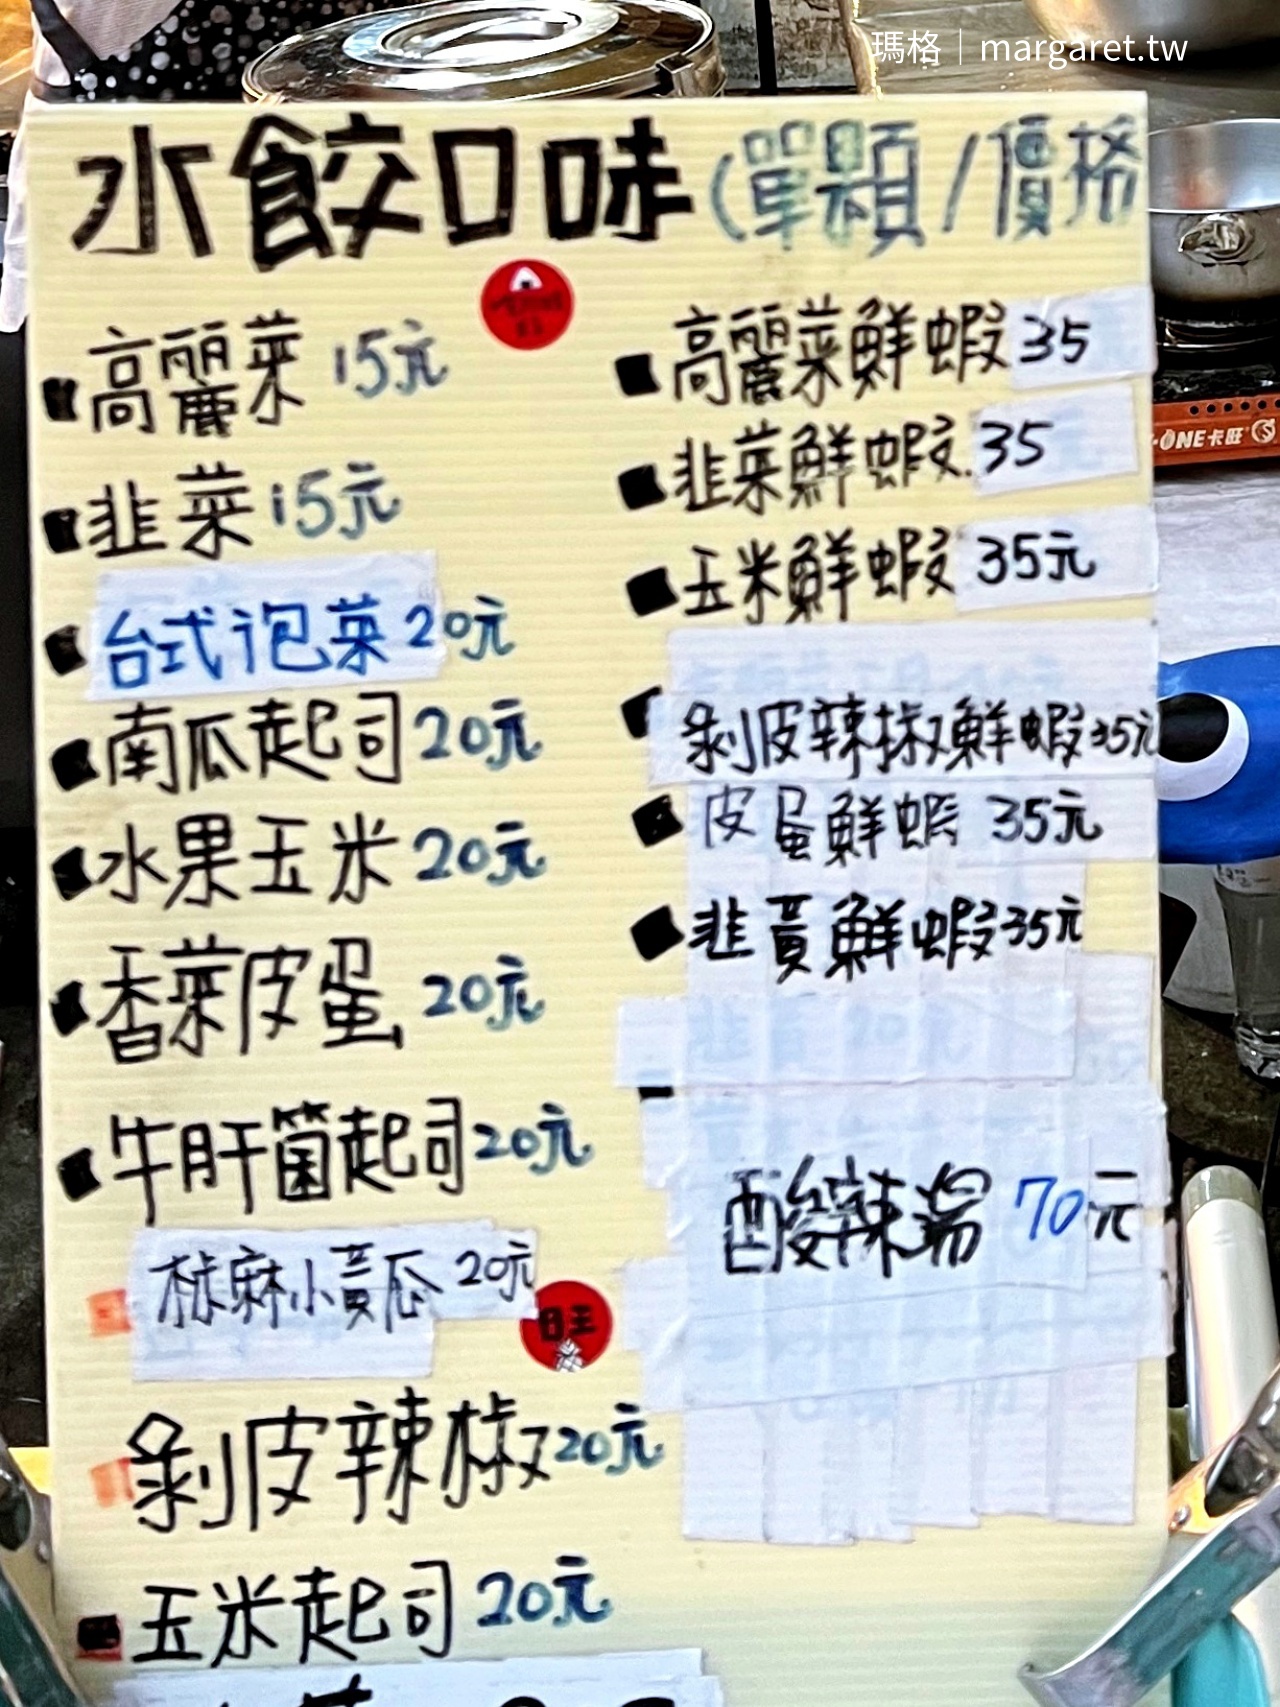 瑪格｜margaret.tw
水餃口味(單顆/價格
高麗菜 15元
韭菜 15元
台式泡菜 20元
南瓜起司 20元
水果玉米 20元
香菜皮蛋 20元
牛肝菌起司 20元
椒麻小黃瓜 20元
旺
剝皮辣椒 20元
玉米起司 20元
高麗菜鮮蝦 35
韭菜鮮蝦 35
玉米鮮蝦 35元
剝皮辣椒鮮蝦 35元
皮蛋鮮蝦 35元
韭黃鮮蝦 35元
酸辣湯 70元
-ONE卡旺